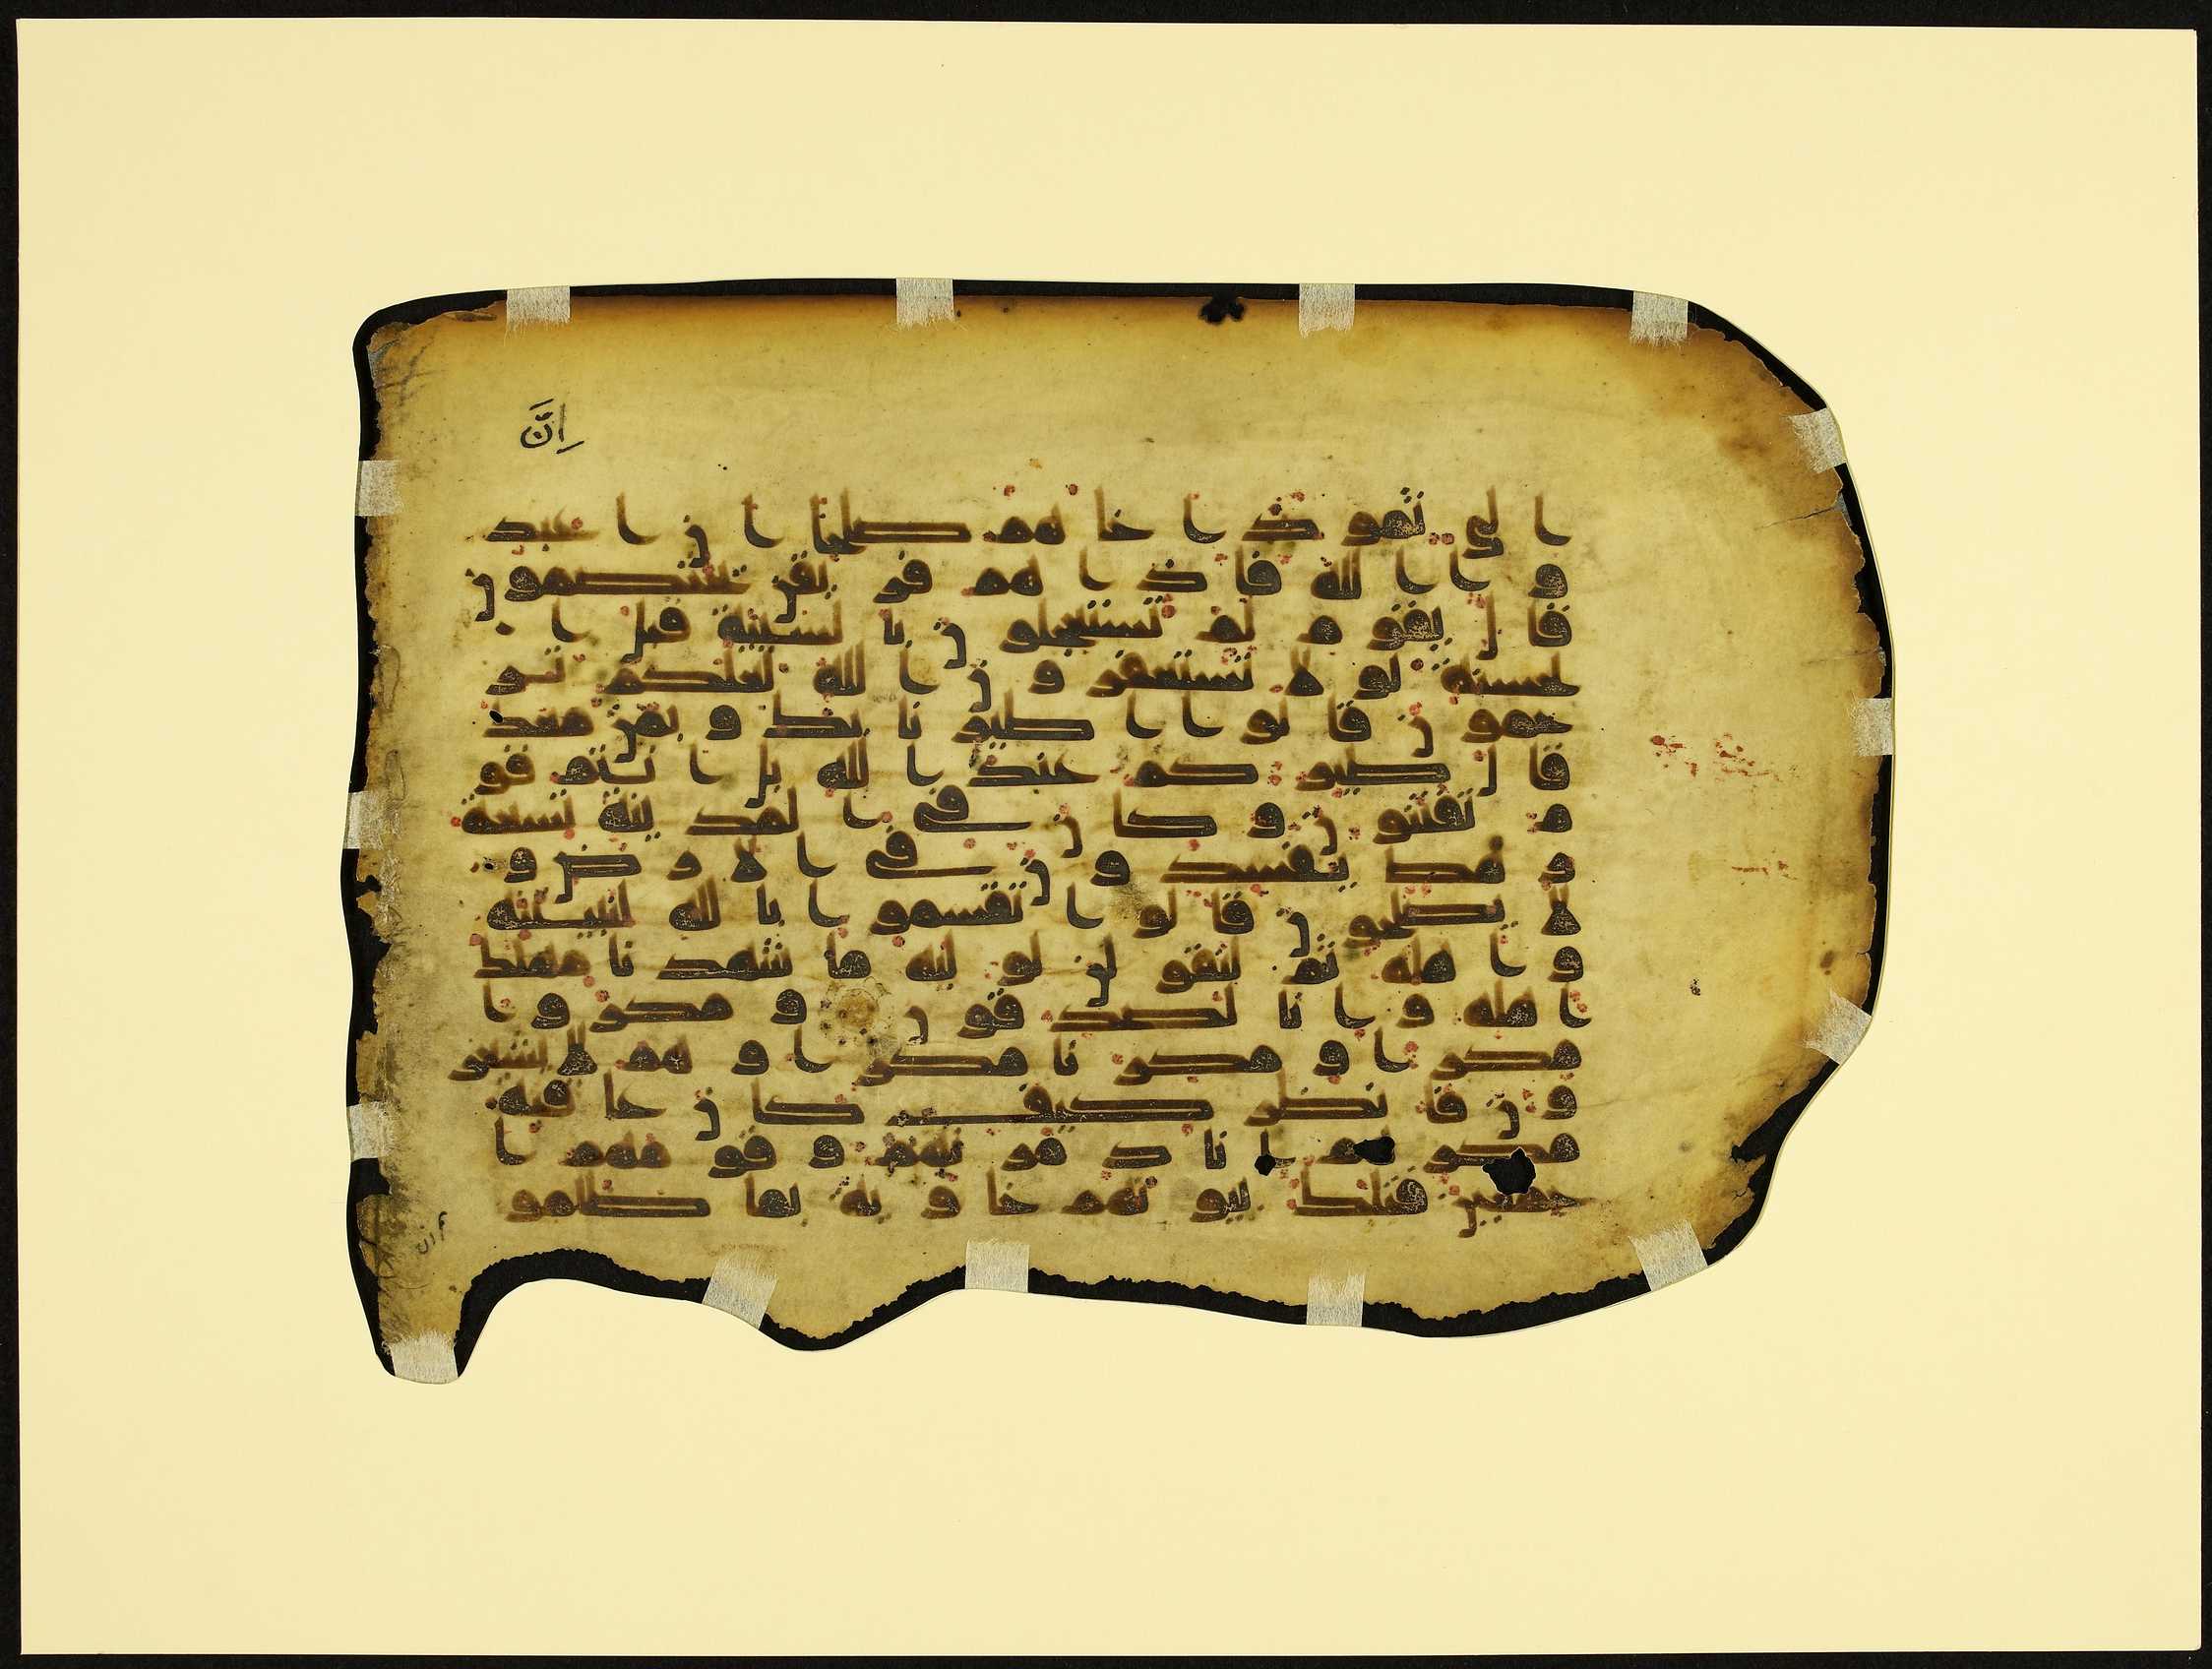 اِنَّ
ا لى ثمو د ا خا هم صلحا ا ن ا عبد
و ا ا لله فا ذ ا هم فر يقن يختصمون
قا ل يقو م لم تستعجلو ن با لسيئة قبل ا
لحسنة لو لا تستغفر و ن ا لله لعلكم تر
حمون قا لو ا ا طير نا بك و بمن معك
قا ل طير كم عند ا لله بل ا نتم قو
م تفتنو ن و كا ن فى ا لمد ينة تسعة
ر هط يفسد و ن فى ا لا ر ض و
لا يصلحو ن قا لو ا تقسمو ا با لله لنبيتنه
و ا هله ثم لنقو لن لو ليه ما شهد نا مهلك
ا هله و ا نا لصد قو ن و مكر و ا
مكر ا و مكر نا مكر ا و هم لا يشعر
و ن فا نظر كيف كا ن عا قبة
مكر هم ا نا د مر نهم و قو مهم ا
جمعين فتلك بيو تهم خا و ية بما ظلمو